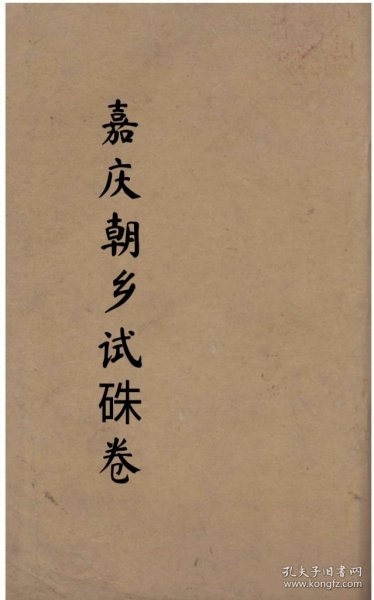 嘉庆朝乡试硃卷
孔夫子旧书网
www.kongfz.com